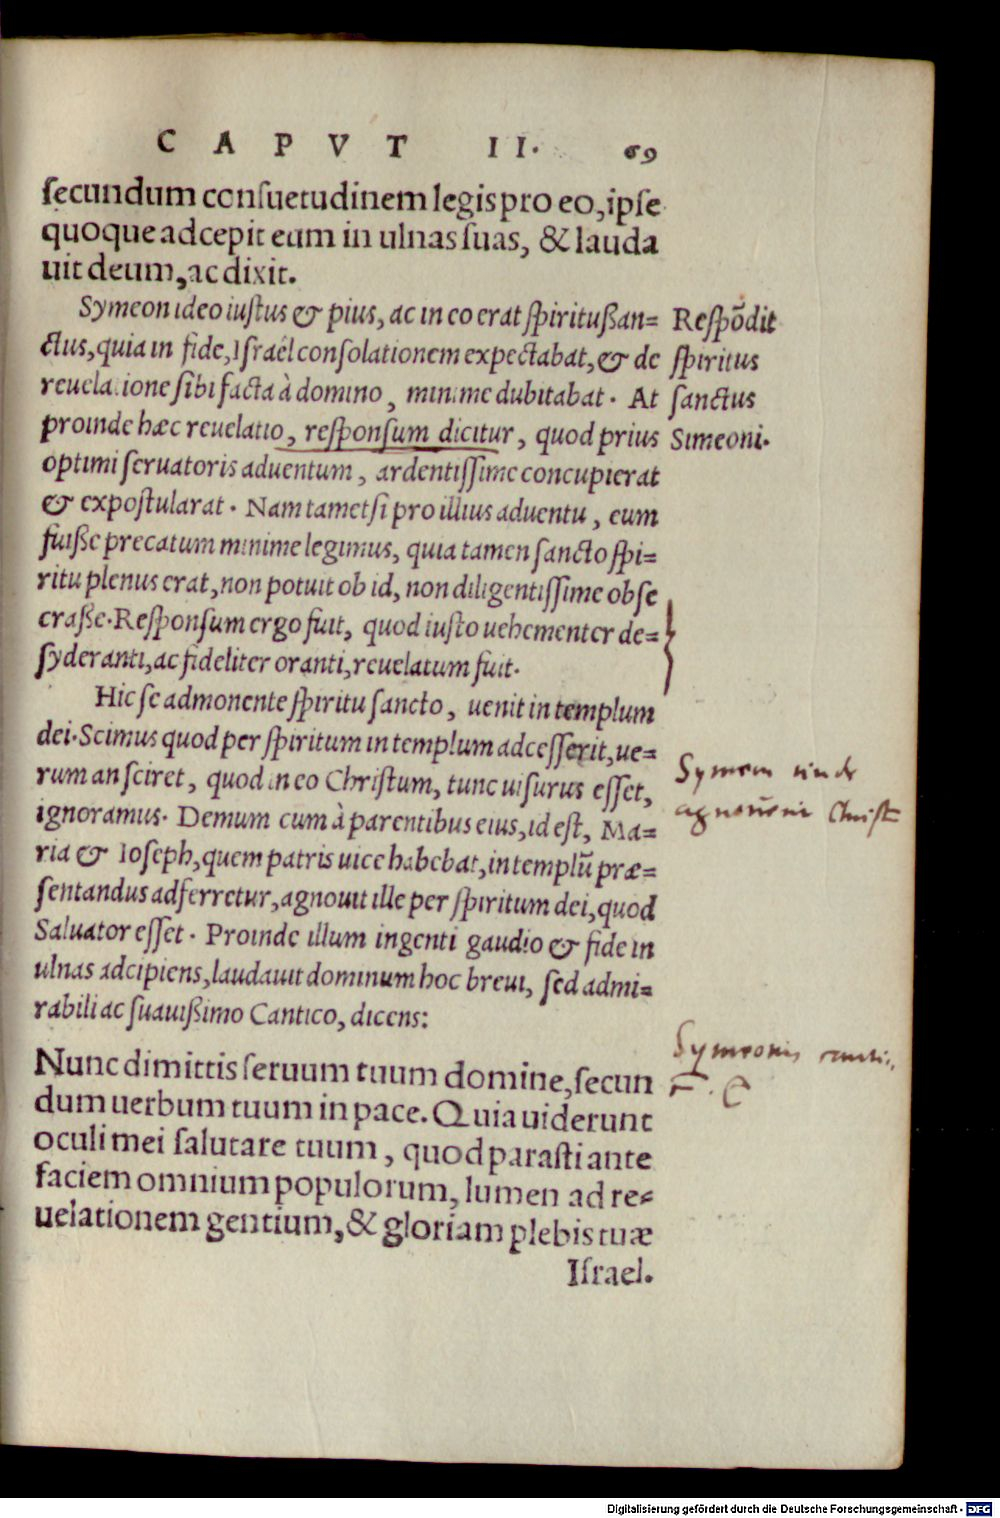 CAPVT II. 69
secundum consuetudinem legis pro eo, ipse
quoque adcepit eum in ulnas suas, & lauda
uit deum, ac dixit.
Symeon ideo iustus & pius, ac in eo erat spiritus san=
ctus, quia in fide, Israël consolationem expectabat, & de
reuelatione sibi facta à domino, minime dubitabat. At
proinde hæc reuelatio, responsum dicitur, quod prius
optimi seruatoris aduentum, ardentissime concupierat
& expostularat. Nam tametsi pro illius aduentu, eum
fuisse precatum minime legimus, quia tamen sancto spi=
ritu plenus erat, non potuit ob id, non diligentissime obse
crasse. Responsum ergo fuit, quod iusto uehementer de=
syderanti, ac fideliter oranti, reuelatum fuit.
Respōdit
spiritus
sanctus
Simeoni.
Hic se admonente spiritu sancto, uenit in templum
dei. Scimus quod per spiritum in templum adcesserit, ue=
rum an sciret, quod in eo Christum, tunc uisurus esset,
ignoramus. Demum cum à parentibus eius, id est, Ma=
ria & Ioseph, quem patris uice habebat, in templū præ=
sentandus adferretur, agnouit ille per spiritum dei, quod
Saluator esset. Proinde illum ingenti gaudio & fide in
ulnas adcipiens, laudauit dominum hoc breui, sed admi=
rabili ac suauissimo Cantico, dicens:
Symeon unde
agnouerit Christ
Nunc dimittis seruum tuum domine, secun
dum uerbum tuum in pace. Quia uiderunt
oculi mei salutare tuum, quod parasti ante
faciem omnium populorum, lumen ad re=
uelationem gentium, & gloriam plebis tuæ
Israel.
Symeonis
Digitalisierung gefördert durch die Deutsche Forschungsgemeinschaft - DFG